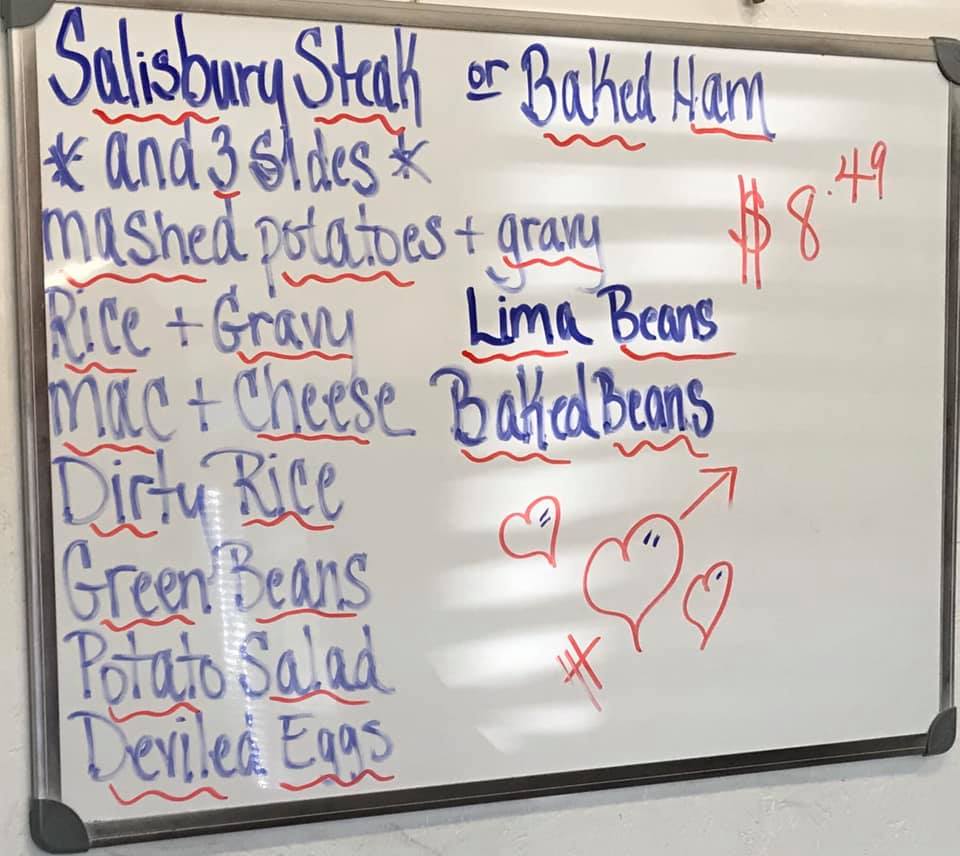 Salisbury Steak or Baked Ham
* and 3 sides *
$8.49
mashed potatoes + gravy
Rice + Gravy
Lima Beans
Mac + Cheese
Baked Beans
Dirty Rice
Green Beans
Potato Salad
Deviled Eggs